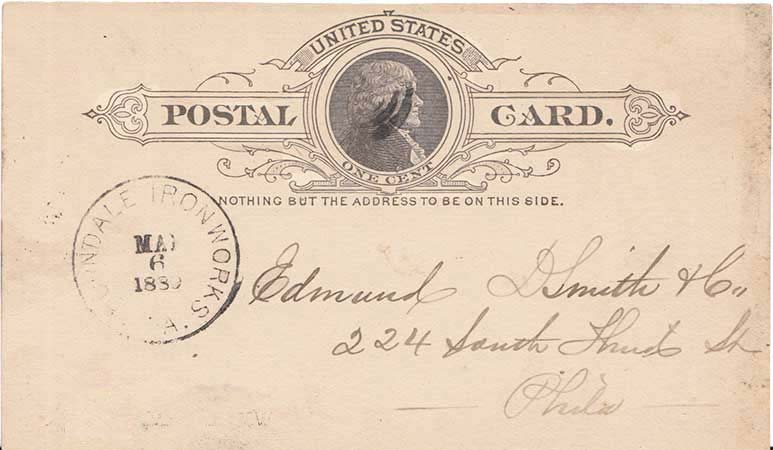 UNITED STATES
POSTAL CARD.
ONE CENT
NOTHING BUT THE ADDRESS TO BE ON THIS SIDE.
IRONWORKS
6
Edmund D Smith & Co
224 South Third St
Phila